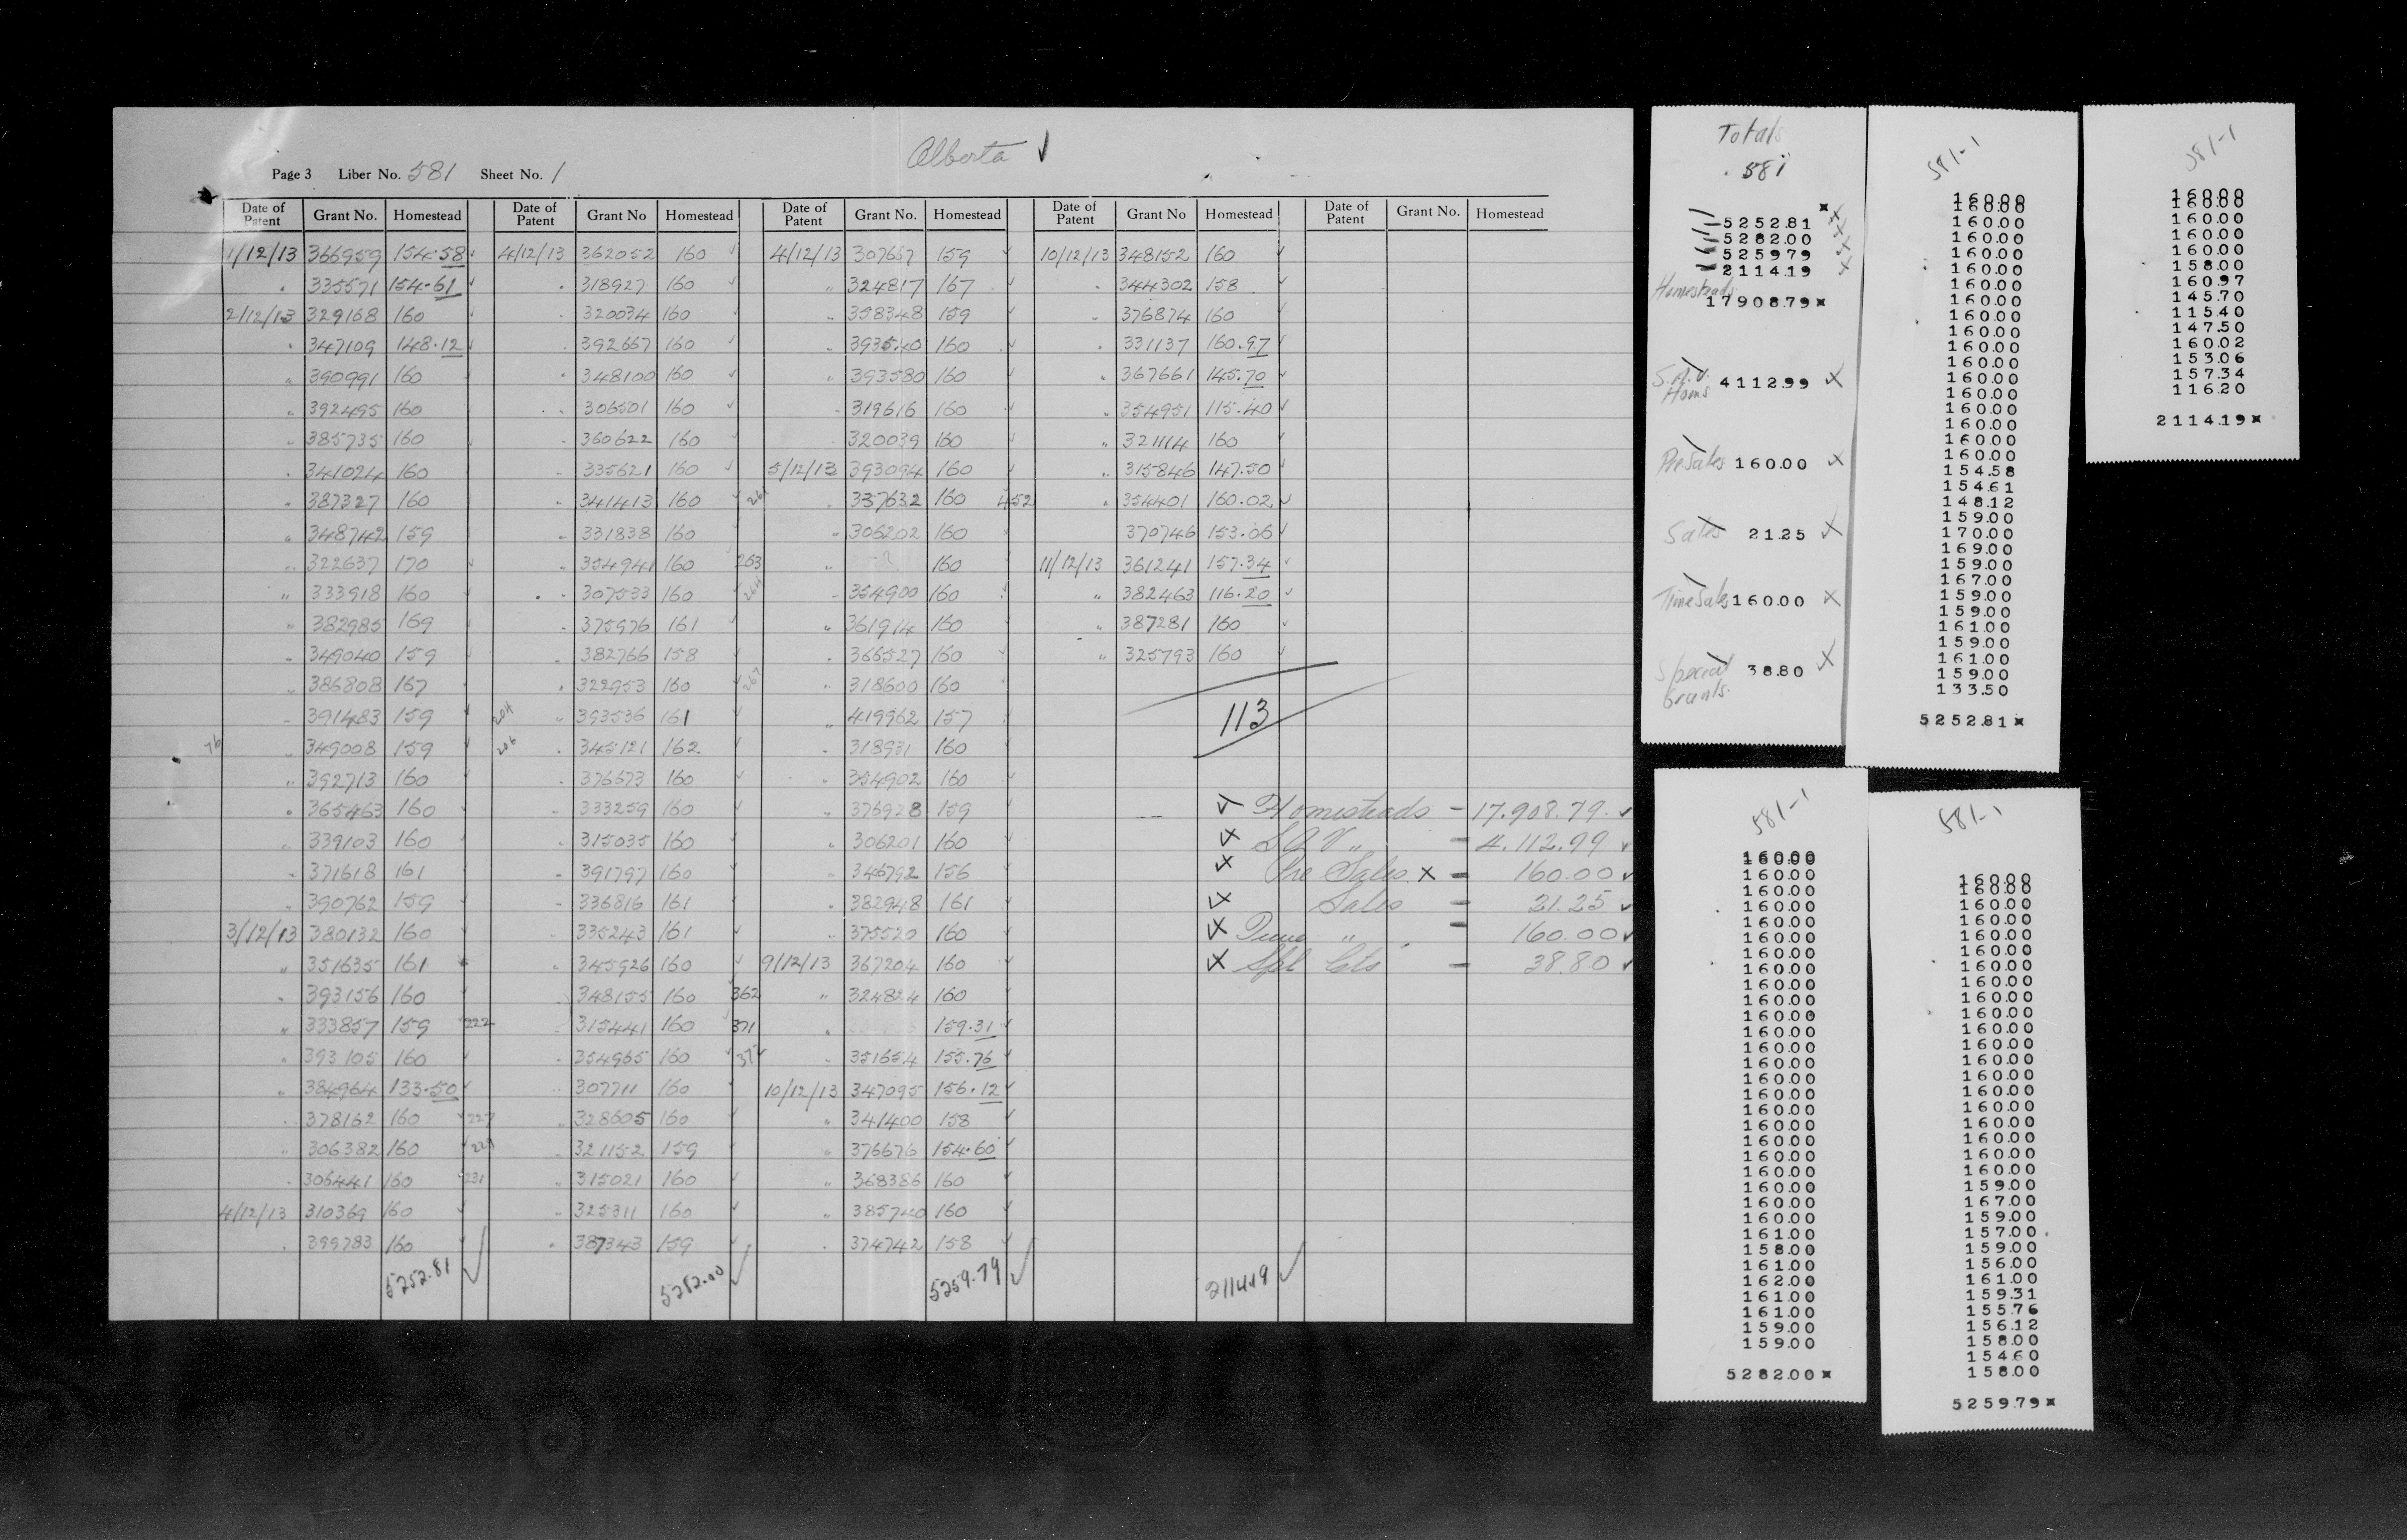 Alberta ✓
Page 3 Liber No. 581 Sheet No. 1
Date of Patent Grant No. Homestead Date of Patent Grant No Homestead Date of Patent Grant No. Homestead Date of Patent Grant No Homestead Date of Patent Grant No. Homestead
1/12/13 366959 154.58 ✓ 4/12/13 362052 160 ✓ 4/12/13 307667 159 ✓ 10/12/13 348152 160 ✓
" 335571 154.61 ✓ " 318927 160 ✓ " 324817 167 ✓ " 344302 158
2/12/13 329168 160 " 320034 160 ✓ " 358348 159 ✓ " 376874 160 ✓
" 347109 148.12 ✓ " 392667 160 ✓ " 393540 160 ✓ " 331137 160.97 ✓
" 390991 160 ✓ " 348100 160 ✓ " 393580 160 ✓ " 367661 145.70 ✓
" 392495 160 " 306501 160 ✓ " 319616 160 ✓ " 354951 115.40 ✓
" 385735 160 ✓ " 360622 160 ✓ 320039 160 ✓ " 321114 160 ✓
" 341024 160 ✓ " 335621 160 ✓ 5/12/13 393094 160 ✓ " 315846 147.50 ✓
" 387327 160 ✓ " 341413 160 ✓ 261 " 337632 160 452 " 354401 160.02 ✓
" 348742 159 " 331838 160 " 306202 160 370746 153.06 ✓
" 322637 170 ✓ " 354941 160 263 " 160 11/12/13 361241 157.34 ✓
" 333918 160 ✓ " 307533 160 ✓ 264 " 354900 160 " 382463 116.20 ✓
" 382985 169 " 375976 161 ✓ " 361914 160 " 387281 160 ✓
" 349040 159 ✓ " 382766 158 ✓ " 366527 160 " 325793 160 ✓
" 386808 167 " 322953 160 ✓ 267 " 318600 160
" 391483 159 ✓ 204 " 393536 161 ✓ " 419962 157 113
76 " 349008 159 ✓ 206 " 345121 162 ✓ " 318931 160
" 392713 160 " 376673 160 ✓ " 354902 160
" 365463 160 ✓ " 333259 160 ✓ " 376928 159 ✓ Homesteads - 17.908.79 ✓
" 339103 160 " 315035 160 ✓ " 306201 160 ✓ S A V " - 4.112.99 ✓
" 371618 161 " 391797 160 ✓ " 346792 156 ✓ Pre Sales x - 160.00 ✓
" 390762 159 " 336816 161 ✓ " 382948 161 ✓ Sales - 21.25 ✓
3/12/13 380132 160 ✓ " 335243 161 ✓ " 375520 160 ✓ Time " - 160.00 ✓
" 351635 161 " 345926 160 ✓ 9/12/13 367204 160 ✓ Spl Gts - 38.80 ✓
" 393156 160 348155 160 362 " 324824 160
" 333857 159 222 315441 160 371 " 159.31 ✓
" 393105 160 ✓ " 354965 160 ✓ 372 " 351654 155.76 ✓
" 384964 133.50 ✓ 307711 160 ✓ 10/12/13 347095 156.12 ✓
" 378162 160 ✓ 227 " 328605 160 " 341400 158 ✓
" 306382 160 ✓ 229 " 321152 159 " 376676 154.60 ✓
" 306441 160 231 " 315021 160 ✓ " 368386 160 ✓
4/12/13 310369 160 ✓ " 325311 160 ✓ " 385740 160 ✓
" 399783 160 ✓ " 387343 159 ✓ " 374742 158 ✓
5252.81 ✓ 5282.00 ✓ 5259.79 ✓ 2114.19 ✓
Totals
581
*
5252.81
5282.00
5259.79
2114.19
Homesteads
17908.79 *
S.A.V. Homs 4112.99 ✓
Pre Sales 160.00 ✓
Sales 21.25 ✓
Time Sales 160.00 ✓
Special Grants. 38.80 ✓
581-1
160.00
160.00
160.00
160.00
160.00
160.00
160.00
160.00
160.00
160.00
160.00
160.00
160.00
160.00
160.00
160.00
160.00
160.00
154.58
154.61
148.12
159.00
170.00
169.00
159.00
167.00
159.00
159.00
161.00
159.00
161.00
159.00
133.50
5252.81 *
581-1
160.00
160.00
160.00
160.00
160.00
158.00
160.97
145.70
115.40
147.50
160.02
153.06
157.34
116.20
2114.19 *
581-1
160.00
160.00
160.00
160.00
160.00
160.00
160.00
160.00
160.00
160.00
160.00
160.00
160.00
160.00
160.00
160.00
160.00
160.00
160.00
160.00
160.00
160.00
160.00
160.00
161.00
158.00
161.00
162.00
161.00
161.00
159.00
159.00
5282.00 *
581-1
160.00
160.00
160.00
160.00
160.00
160.00
160.00
160.00
160.00
160.00
160.00
160.00
160.00
160.00
160.00
160.00
160.00
160.00
160.00
159.00
167.00
159.00
157.00
159.00
156.00
161.00
159.31
155.76
156.12
158.00
154.60
158.00
5259.79 *